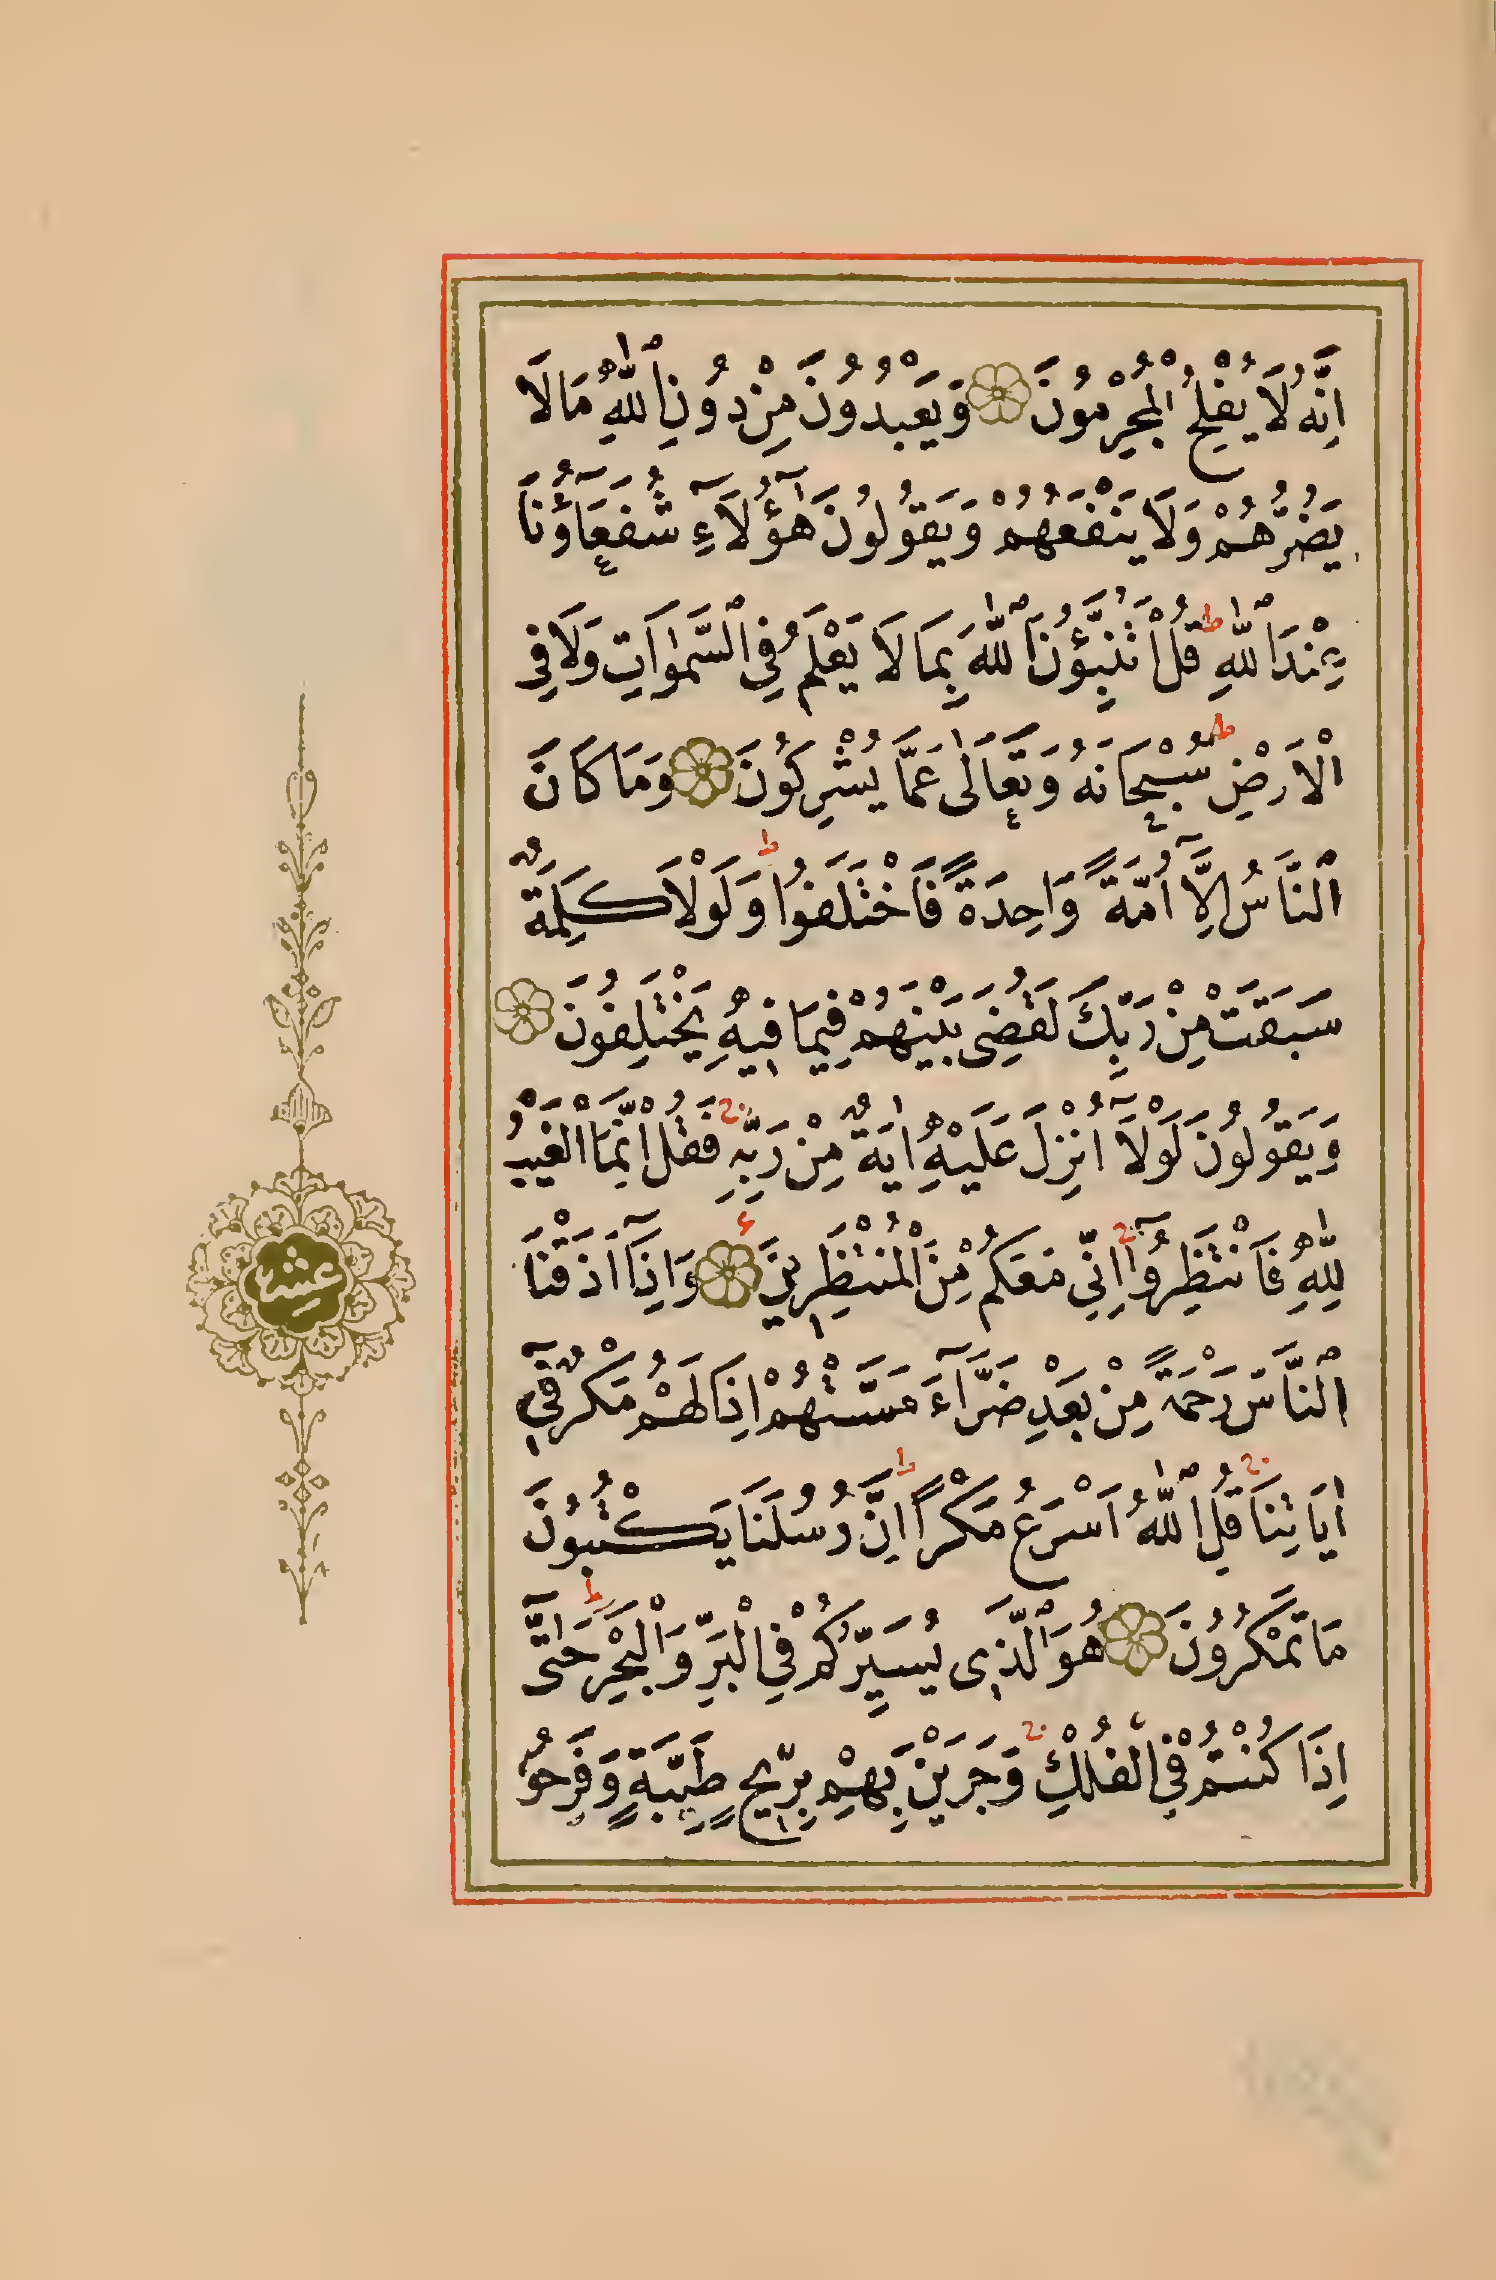 اِنَّهُ لَا يُفْلِحُ الْمُجْرِمُونَ وَيَعْبُدُونَ مِنْ دُونِ ٱللّٰهِ مَا لَا
يَضُرُّهُمْ وَلَا يَنْفَعُهُمْ وَيَقُولُونَ هٰٓؤُلَآءِ شُفَعَآؤُنَا
عِنْدَ ٱللّٰهِ ط قُلْ اَتُنَبِّؤُنَ ٱللّٰهَ بِمَا لَا يَعْلَمُ فِى ٱلسَّمٰوَاتِ وَلَا فِى
الْاَرْضِ ط سُبْحَانَهُ وَتَعَالٰى عَمَّا يُشْرِكُونَ وَمَا كَانَ
ٱلنَّاسُ اِلَّآ اُمَّةً وَاحِدَةً فَاخْتَلَفُوا ط وَلَوْلَا كَلِمَةٌ
سَبَقَتْ مِنْ رَبِّكَ لَقُضِىَ بَيْنَهُمْ فِيمَا فِيهِ يَخْتَلِفُونَ
وَيَقُولُونَ لَوْلَآ اُنْزِلَ عَلَيْهِ اٰيَةٌ مِنْ رَبِّهِ ج فَقُلْ اِنَّمَا الْغَيْبُ
لِلّٰهِ فَانْتَظِرُوٓا ج اِنِّى مَعَكُمْ مِنَ الْمُنْتَظِرِينَ ع وَاِذَآ اَذَقْنَا
ٱلنَّاسَ رَحْمَةً مِنْ بَعْدِ ضَرَّآءَ مَسَّتْهُمْ اِذَا لَهُمْ مَكْرٌ فِىٓ
اٰيَاتِنَا ج قُلِ ٱللّٰهُ اَسْرَعُ مَكْراً ط اِنَّ رُسُلَنَا يَكْتُبُونَ
مَا تَمْكُرُونَ هُوَ ٱلَّذِى يُسَيِّرُكُمْ فِى الْبَرِّ وَالْبَحْرِ ط حَتّٰٓى
اِذَا كُنْتُمْ فِى الْفُلْكِ ج وَجَرَيْنَ بِهِمْ بِرِيحٍ طَيِّبَةٍ وَفَرِحُوا
عشر